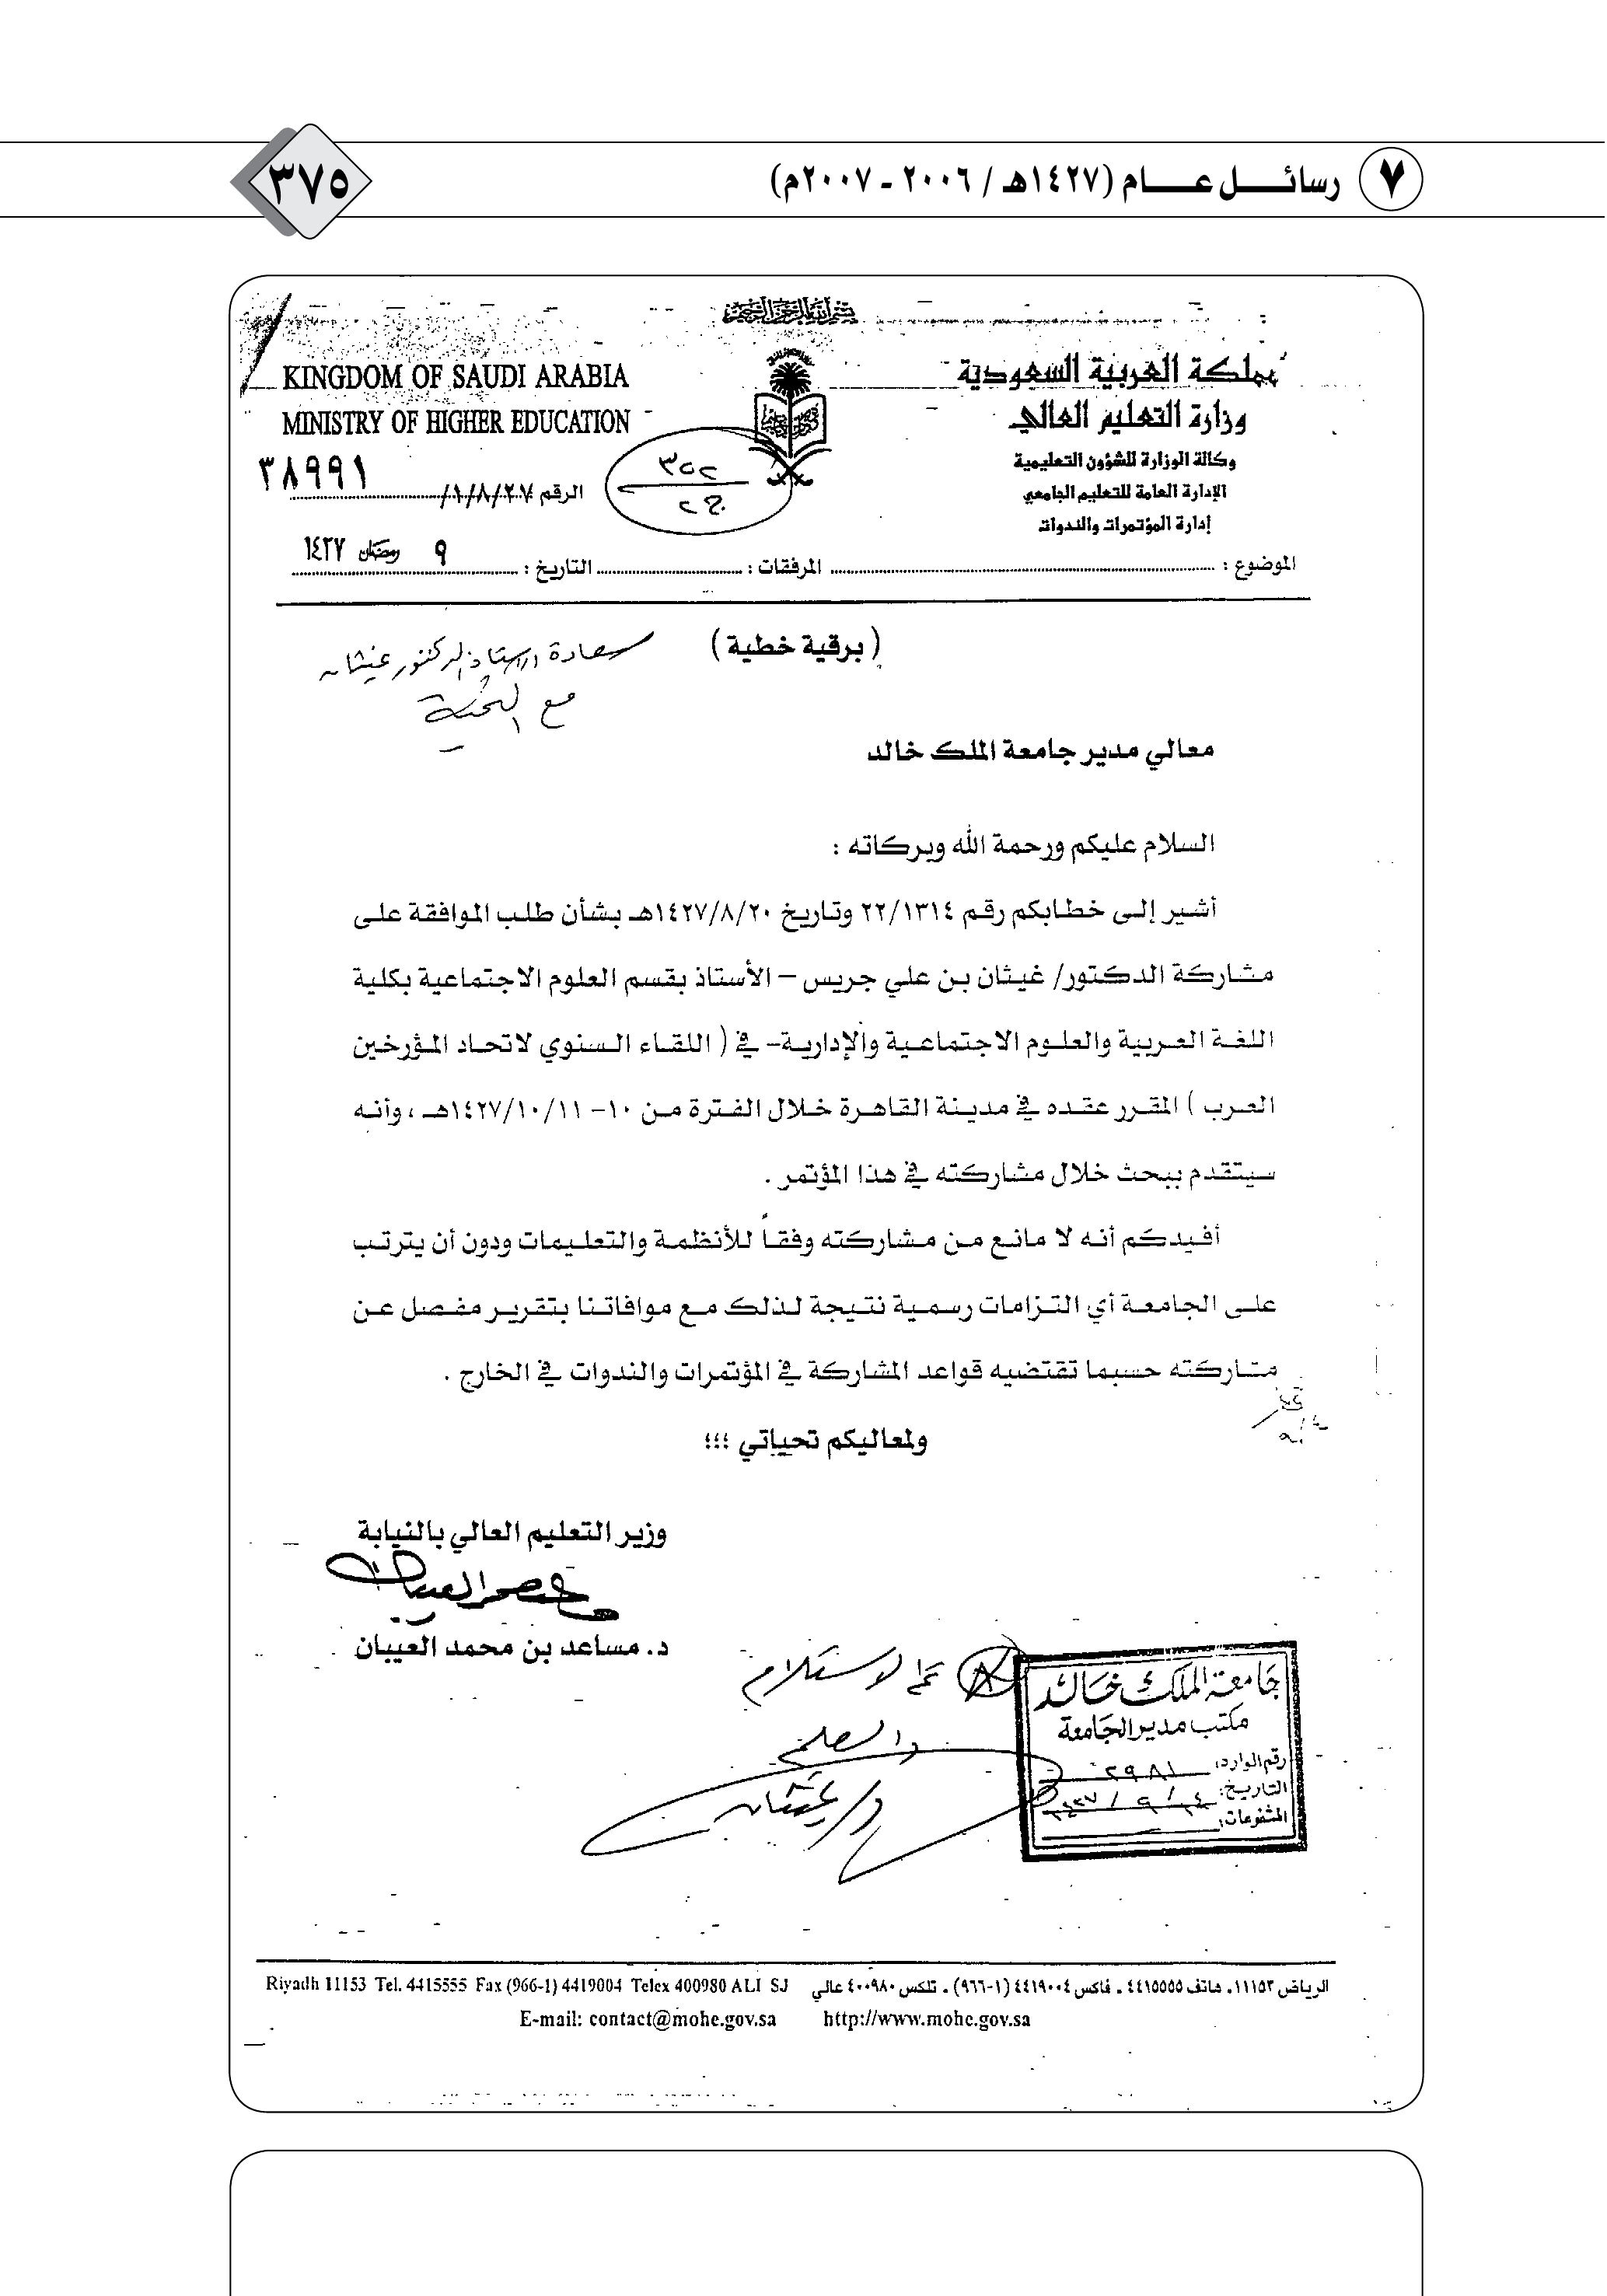 ٧ رسائل عام (١٤٢٧هـ / ٢٠٠٦ ـ ٢٠٠٧م)
٣٧٥
بسم الله الرحمن الرحيم
KINGDOM OF SAUDI ARABIA
MINISTRY OF HIGHER EDUCATION
المملكة العربية السعودية
وزارة التعليم العالي
وكالة الوزارة للشؤون التعليمية
الإدارة العامة للتعليم الجامعي
إدارة المؤتمرات والندوات
٣٨٩٩١
الرقم ١/٨/٢٠٧/
الموضوع : المرفقات : التاريخ : ٩ رمضان ١٤٢٧
( برقية خطية )
سعادة الاستاذ الدكتور غيثان
مع التحية
معالي مدير جامعة الملك خالد
السلام عليكم ورحمة الله وبركاته :
أشير إلى خطابكم رقم ٢٢/١٣١٤ وتاريخ ١٤٢٧/٨/٢٠هـ بشأن طلب الموافقة على
مشاركة الدكتور/ غيثان بن علي جريس – الأستاذ بقسم العلوم الاجتماعية بكلية
اللغة العربية والعلوم الاجتماعية والإدارية– في ( اللقاء السنوي لاتحاد المؤرخين
العرب ) المقرر عقده في مدينة القاهرة خلال الفترة من ١٠– ١٤٢٧/١٠/١١هـ ، وأنه
سيتقدم ببحث خلال مشاركته في هذا المؤتمر .
أفيدكم أنه لا مانع من مشاركته وفقاً للأنظمة والتعليمات ودون أن يترتب
على الجامعة أي التزامات رسمية نتيجة لذلك مع موافاتنا بتقرير مفصل عن
مشاركته حسبما تقتضيه قواعد المشاركة في المؤتمرات والندوات في الخارج .
ولمعاليكم تحياتي ؛؛؛
وزير التعليم العالي بالنيابة
د. مساعد بن محمد العيبان
تم الاستلام
د/ غيثان
جامعة الملك خالد
مكتب مدير الجامعة
رقم الوارد: ٢٩٨١
التاريخ: ١٤ / ٩ / ١٤٢٧
المشفوعات:
الرياض ١١١٥٣. هاتف ٤٤١٥٥٥٥ . فاكس ٤٤١٩٠٠٤ (١-٩٦٦) . تلكس ٤٠٠٩٨٠ عالي
Riyadh 11153 Tel. 4415555 Fax (966-1) 4419004 Telex 400980 ALI SJ
E-mail: contact@mohe.gov.sa http://www.mohe.gov.sa